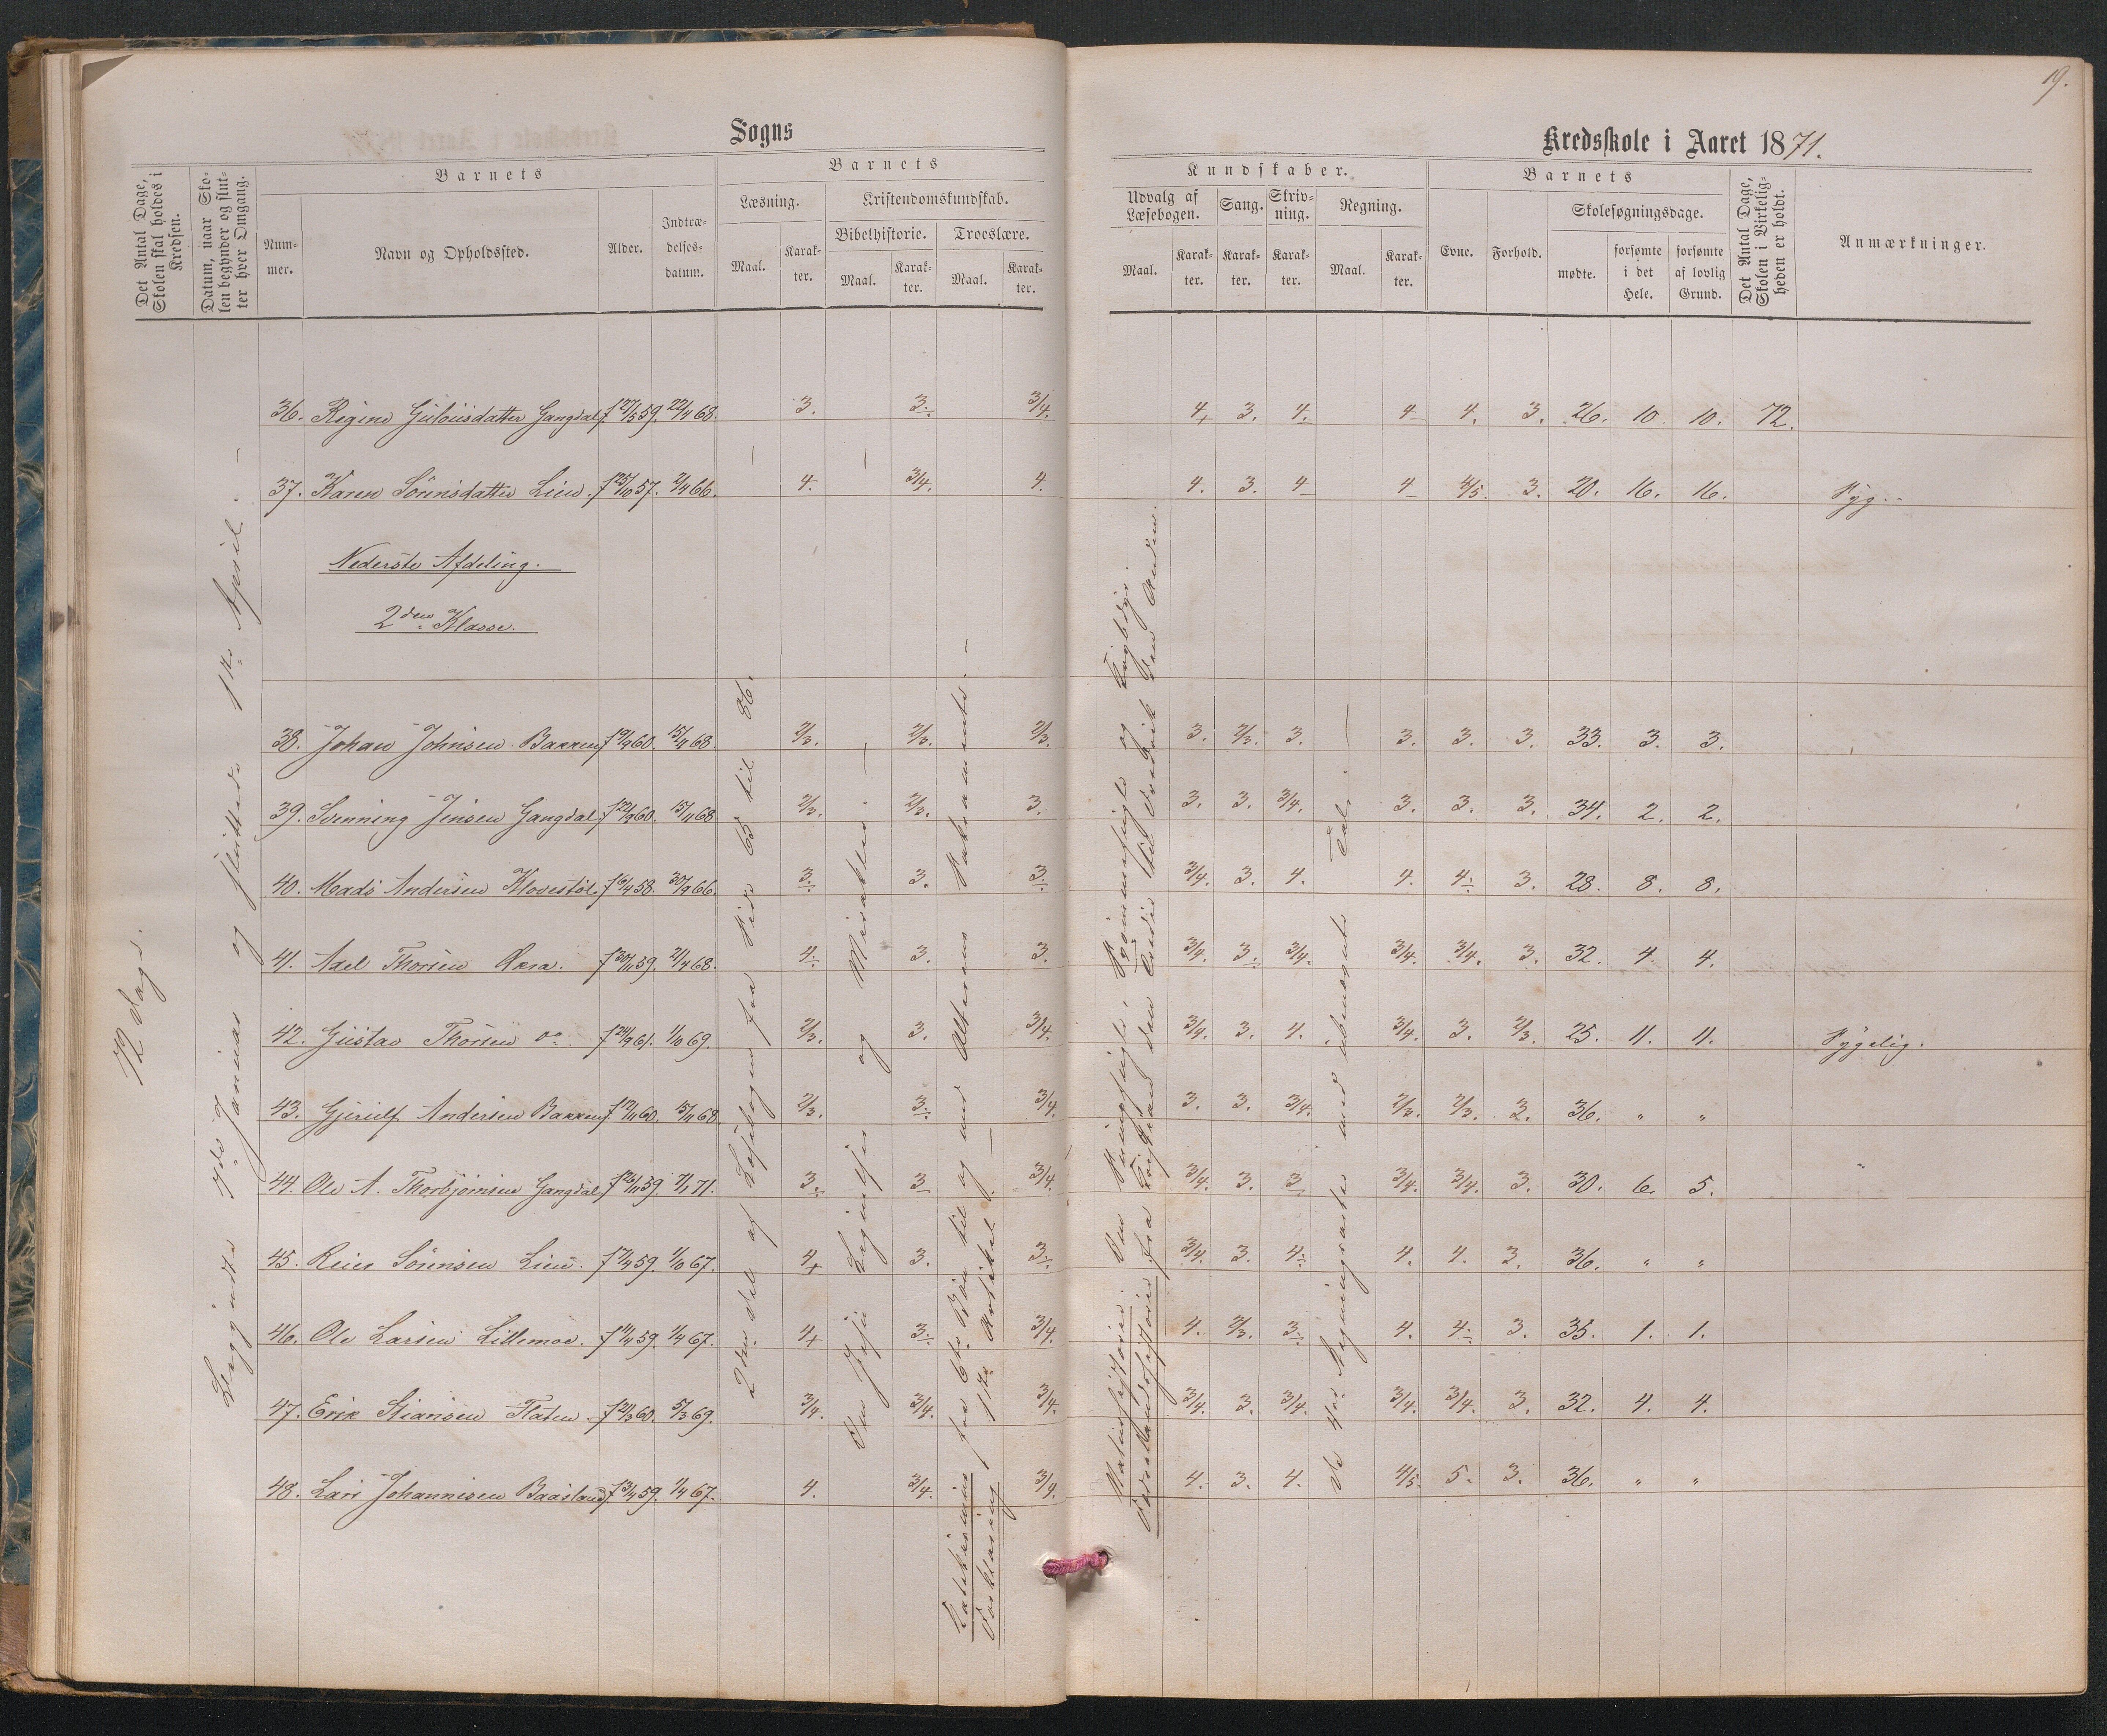 19.
Sogns
Kredsskole i Aaret 1871.
Det Antal Dage, Skolen skal holdes i Kredsen.
Datum, naar Skolen begynder og slutter hver Omgang.
Barnets
Nummer.
Navn og Opholdssted.
Alder.
Indtrædelsesdatum.
Barnets
Læsning.
Maal.
Karakter.
Kristendomskundskab.
Bibelhistorie.
Maal.
Karakter.
Troeslære.
Maal.
Karakter.
Kundskaber.
Udvalg af Læsebogen.
Maal.
Karakter.
Sang.
Karakter.
Skrivning.
Karakter.
Regning.
Maal.
Karakter.
Barnets
Evne.
Forhold.
Skolesøgningsdage.
mødte.
forsømte i det Hele.
forsømte af lovlig Grund.
Det Antal Dage, Skolen i Virkeligheden er holdt.
Anmærkninger.
72 Dage.
Begyndte 7de Januar og sluttede 1ste April. –
36. Regine Guldusdatter Gangdal f 27/5 59. 22/4 68. 3. 3. 3/4. 4+ 3. 4. 4 4. 3. 26. 10 10. 72.
37. Karen Sörensdatter Lien. f 25/10 57. 2/4 66. 4. 3/4. 4. 4. 3. 4 4 4/5. 3. 20. 16. 16. Syg.
Nederste Afdeling.
2den Klasse.
38. Johan Johnsen Bakken f 9/9 60. 15/4 68. 2/3. 2/3. 2/3. 3. 2/3. 3. 3. 3. 3. 33. 3. 3.
39. Svenning Jensen Gangdal. f 22/9 60. 15/11 68 2/3. 2/3. 3. 3. 3. 3/4. 3. 3. 3. 34. 2. 2.
40. Mads Andersen Klovestöl. f 6/4 58. 30/9 66. 3. 3. 3. 3/4. 3. 4. 4. 4. 3. 28. 8. 8.
41. Axel Thorsen Aasa. f 30/11 59. 2/4 68. 4. 3. 3. 3/4. 3. 3/4. 3/4. 3/4. 3. 32. 4. 4.
42. Gustav Thorsen do f 24/9 61. 1/10 69. 2/3. 3. 3/4. 3/4. 3. 4. 3/4. 3. 2/3. 25. 11. 11. Sygelig.
43. Gjerulf Andersen Bakken f 12/11 60. 15/11 68. 2/3. 3. 3/4. 3. 3. 3/4. 2/3. 2/3. 3. 36. " "
44. Ole A. Thorbjörnsen Gangdal f 26/11 59. 7/1 71. 3. 3 3/4. 3/4. 3. 3 3/4. 3/4. 3. 30. 6. 5.
45. Reier Sörensen Lien. f 7/4 59. 1/10 67. 4+ 3. 3. 3/4. 3. 4. 4. 4. 3. 36. " "
46. Ole Larsen Lillemoe. f 11/4 59. 1/4 67. 4+ 3. 3/4. 4. 2/3. 3. 4. 4. 3. 35. 1. 1.
47. Erik Stiansen Flaten. f 21/3 60. 5/3 69. 3/4. 3/4. 3/4. 3/4. 3. 3/4. 3/4. 3/4. 3. 32. 4. 4.
48. Lars Johannesen Baasland f 3/4 59. 1/4 67. 4. 3/4. 3/4. 4. 3. 4. 4/5. 5. 3. 36. " "
2den Del af Læsebogen fra Side 65 til 86.
Om Jesu Lignelser og Mirakler. –
Katekismus fra 6te Bön til og med Alterens Sakramente. –
Forklaring 1ste Artikel. –
Naturhistorie. Om Svömmefugle og
Fædrelandshistorie fra
de fire Regningsarter med ubenævnte Tal. –